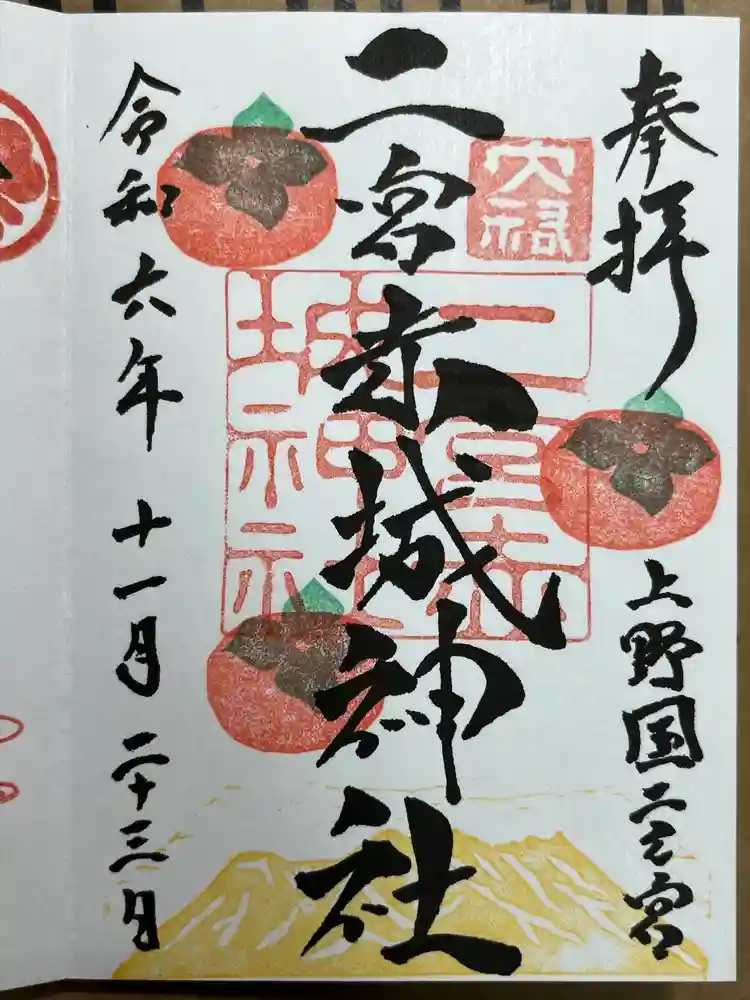 奉拝
上野国二之宮
二宮赤城神社
令和六年十一月二十三日
二宮赤
城神社